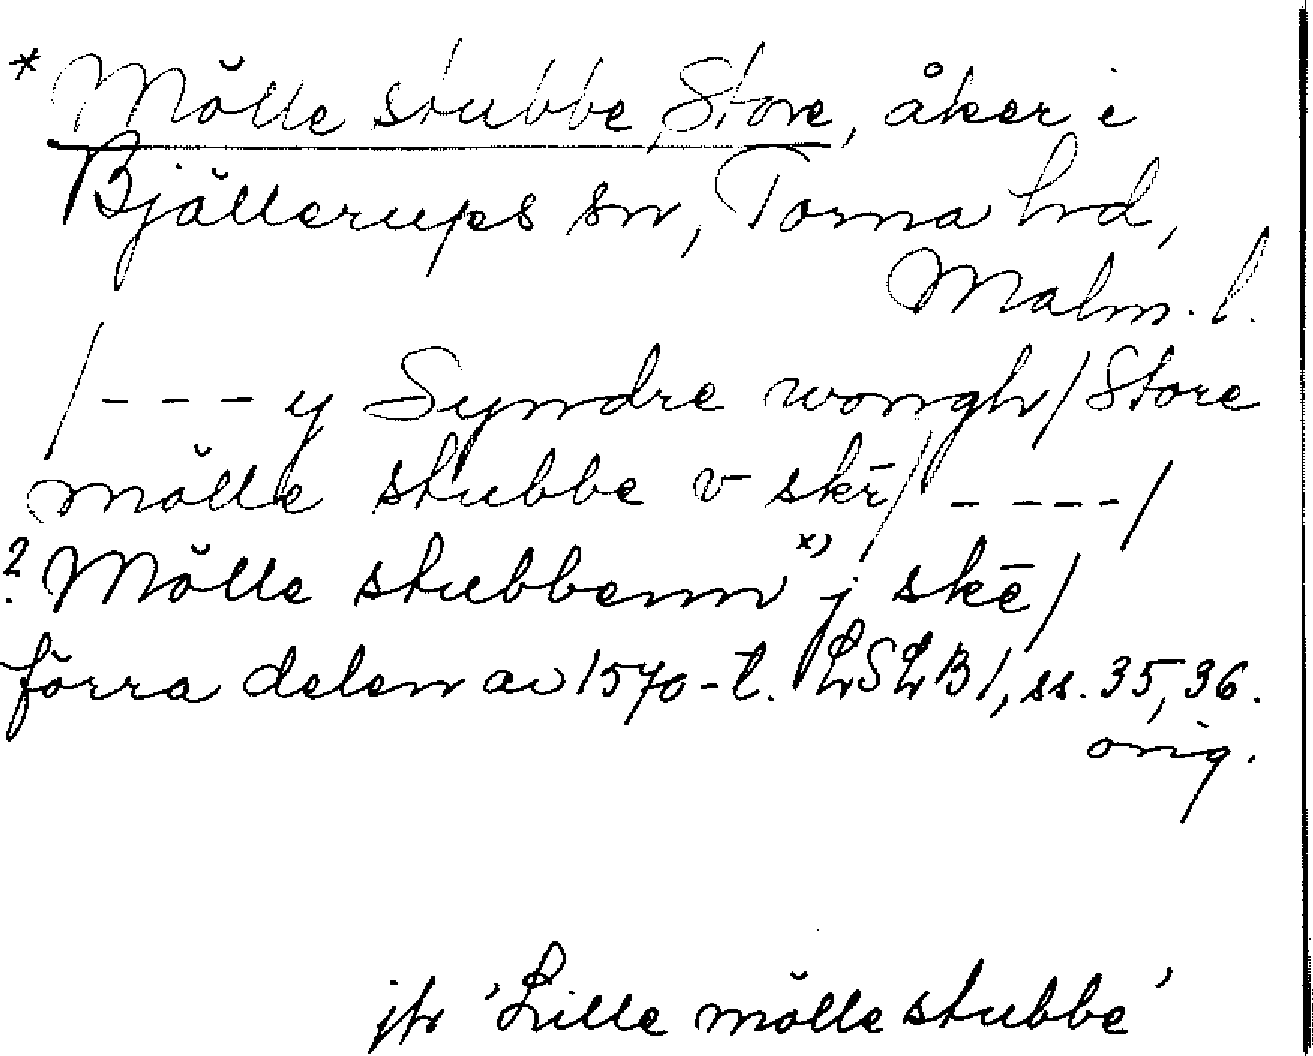 * Mölle stubbe, Store, åker i
Bjällerups sn, Torna hd,
Malm. l.
/---y Syndre wongh/Store
mölle stubbe v skē/ ----/
? Mölle stubbenn x) j skē/
förra delen av 1570-t. LSLB1, ss. 35, 36.
orig.
jfr 'Lille mölle stubbe'